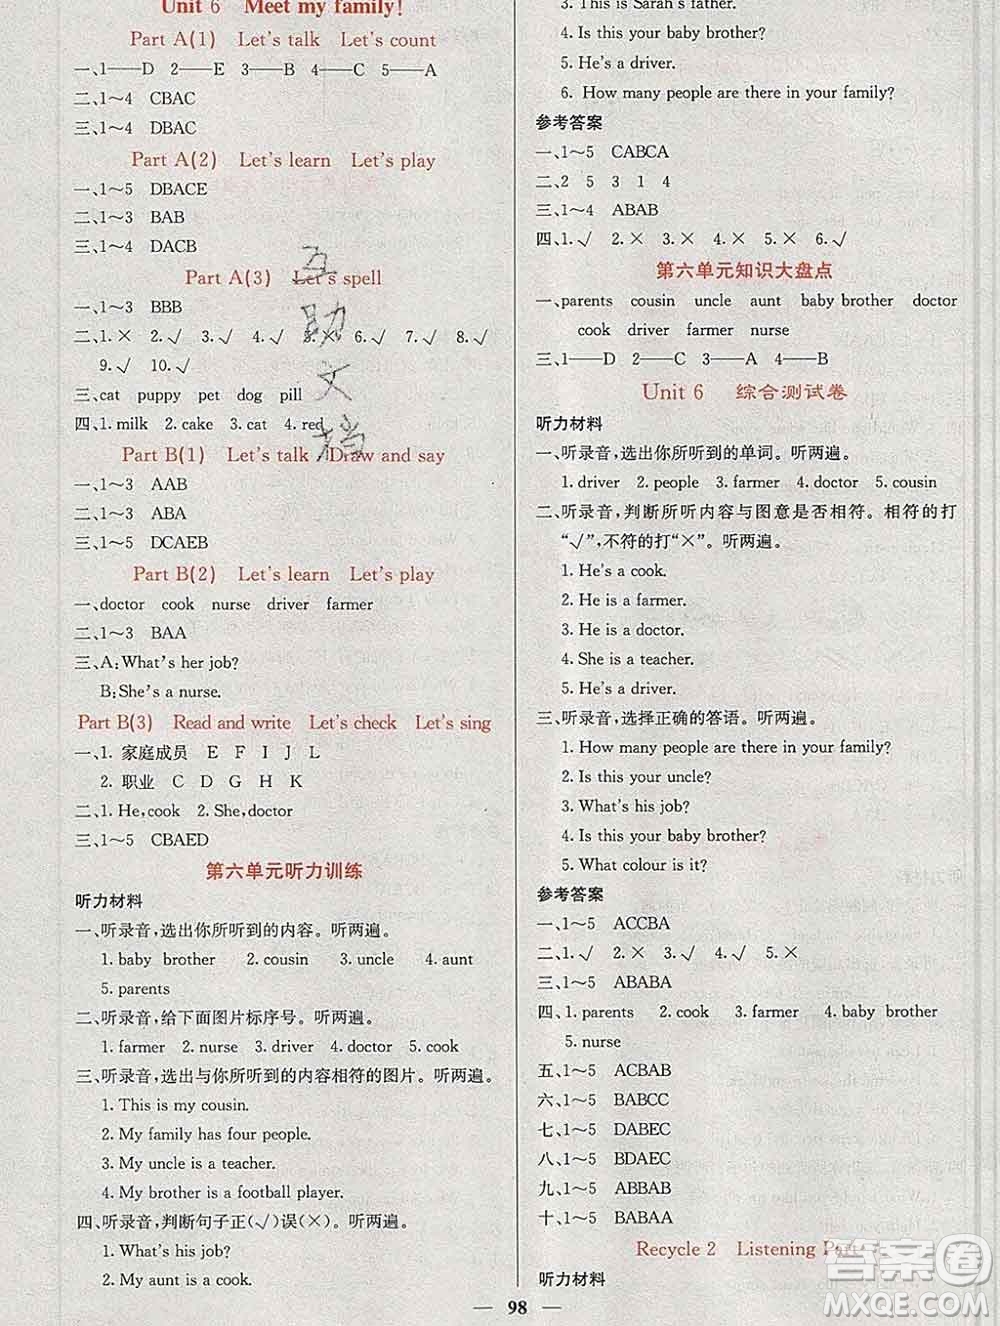 Unit 6 Meet my family!
Part A(1) Let's talk Let's count
一、1——D 2——E 3——B 4——C 5——A
二、1～4 CBAC
三、1～4 DBAC
Part A(2) Let's learn Let's play
一、1～5 DBACE
二、1～3 BAB
三、1～4 DACB
Part A(3) Let's spell
一、1～3 BBB
二、1.× 2.√ 3.√ 4.√ 5.× 6.√ 7.√ 8.√
9.√ 10.√
三、cat puppy pet dog pill
四、1. milk 2. cake 3. cat 4. red
Part B(1) Let's talk Draw and say
一、1～3 AAB
二、1～3 ABA
三、1～5 DCAEB
Part B(2) Let's learn Let's play
一、doctor cook nurse driver farmer
二、1～3 BAA
三、A:What's her job?
B:She's a nurse.
Part B(3) Read and write Let's check Let's sing
一、1. 家庭成员 E F I J L
2. 职业 C D G H K
二、1. He,cook 2. She,doctor
三、1～5 CBAED
第六单元听力训练
听力材料
一、听录音,选出你所听到的内容。听两遍。
1. baby brother 2. cousin 3. uncle 4. aunt
5. parents
二、听录音,给下面图片标序号。听两遍。
1. farmer 2. nurse 3. driver 4. doctor 5. cook
三、听录音,选出与你所听到的内容相符的图片。听两遍。
1. This is my cousin.
2. My family has four people.
3. My uncle is a teacher.
4. My brother is a football player.
四、听录音,判断句子正(√)误(×)。听两遍。
1. What's his job?
2. My aunt is a cook.
3. This is Sarah's father.
4. Is this your baby brother?
5. He's a driver.
6. How many people are there in your family?
参考答案
一、1～5 CABCA
二、2 5 3 1 4
三、1～4 ABAB
四、1.√ 2.× 3.× 4.× 5.× 6.√
第六单元知识大盘点
一、parents cousin uncle aunt baby brother doctor
cook driver farmer nurse
三、1——D 2——C 3——A 4——B
Unit 6 综合测试卷
听力材料
一、听录音,选出你所听到的单词。听两遍。
1. driver 2. people 3. farmer 4. doctor 5. cousin
二、听录音,判断所听内容与图意是否相符。相符的打
“√”,不符的打“×”。听两遍。
1. He's a cook.
2. He is a farmer.
3. He is a doctor.
4. She is a teacher.
5. He's a driver.
三、听录音,选择正确的答语。听两遍。
1. How many people are there in your family?
2. Is this your uncle?
3. What's his job?
4. Is this your baby brother?
5. What colour is it?
参考答案
一、1～5 ACCBA
二、1.√ 2.× 3.√ 4.√ 5.×
三、1～5 ABABA
四、1. parents 2. cook 3. farmer 4. baby brother
5. nurse
五、1～5 ACBAB
六、1～5 BABCC
七、1～5 DABEC
八、1～5 BDAEC
九、1～5 ABBAB
十、1～5 BABAA
Recycle 2 Listening Part
听力材料
— 98 —
互助文档
答案圈
MXQE.COM